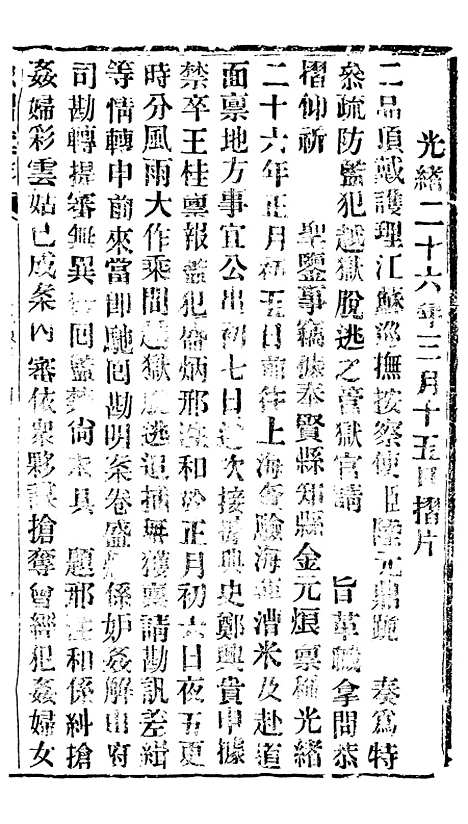 光緒二十六年三月十五日摺片
二品頂戴護理江蘇巡撫按察使臣陸元鼎跪 奏爲特
叅疏防監犯越獄脫逃之管獄官請 旨革職拿問恭
摺仰祈 聖鑒事竊據奉賢縣知縣金元烺稟稱光緒
二十六年正月初五日前往上海會驗海運漕米及赴道
面稟地方事宜公出初七日途次接署典史鄭興貴申據
禁卒王桂稟報監犯 炳邢 和於正月初六日夜五更
時分風雨大作乘間越獄脫逃追捕無獲稟請勘訊差緝
等情轉申前來當即馳回勘明案卷盛 係妒姦解由府
司勘轉提審無異 回監禁尚未具 題邢 和係糾搶
姦婦彩雲姑已成案內審依衆夥 搶奪曾經犯姦婦女